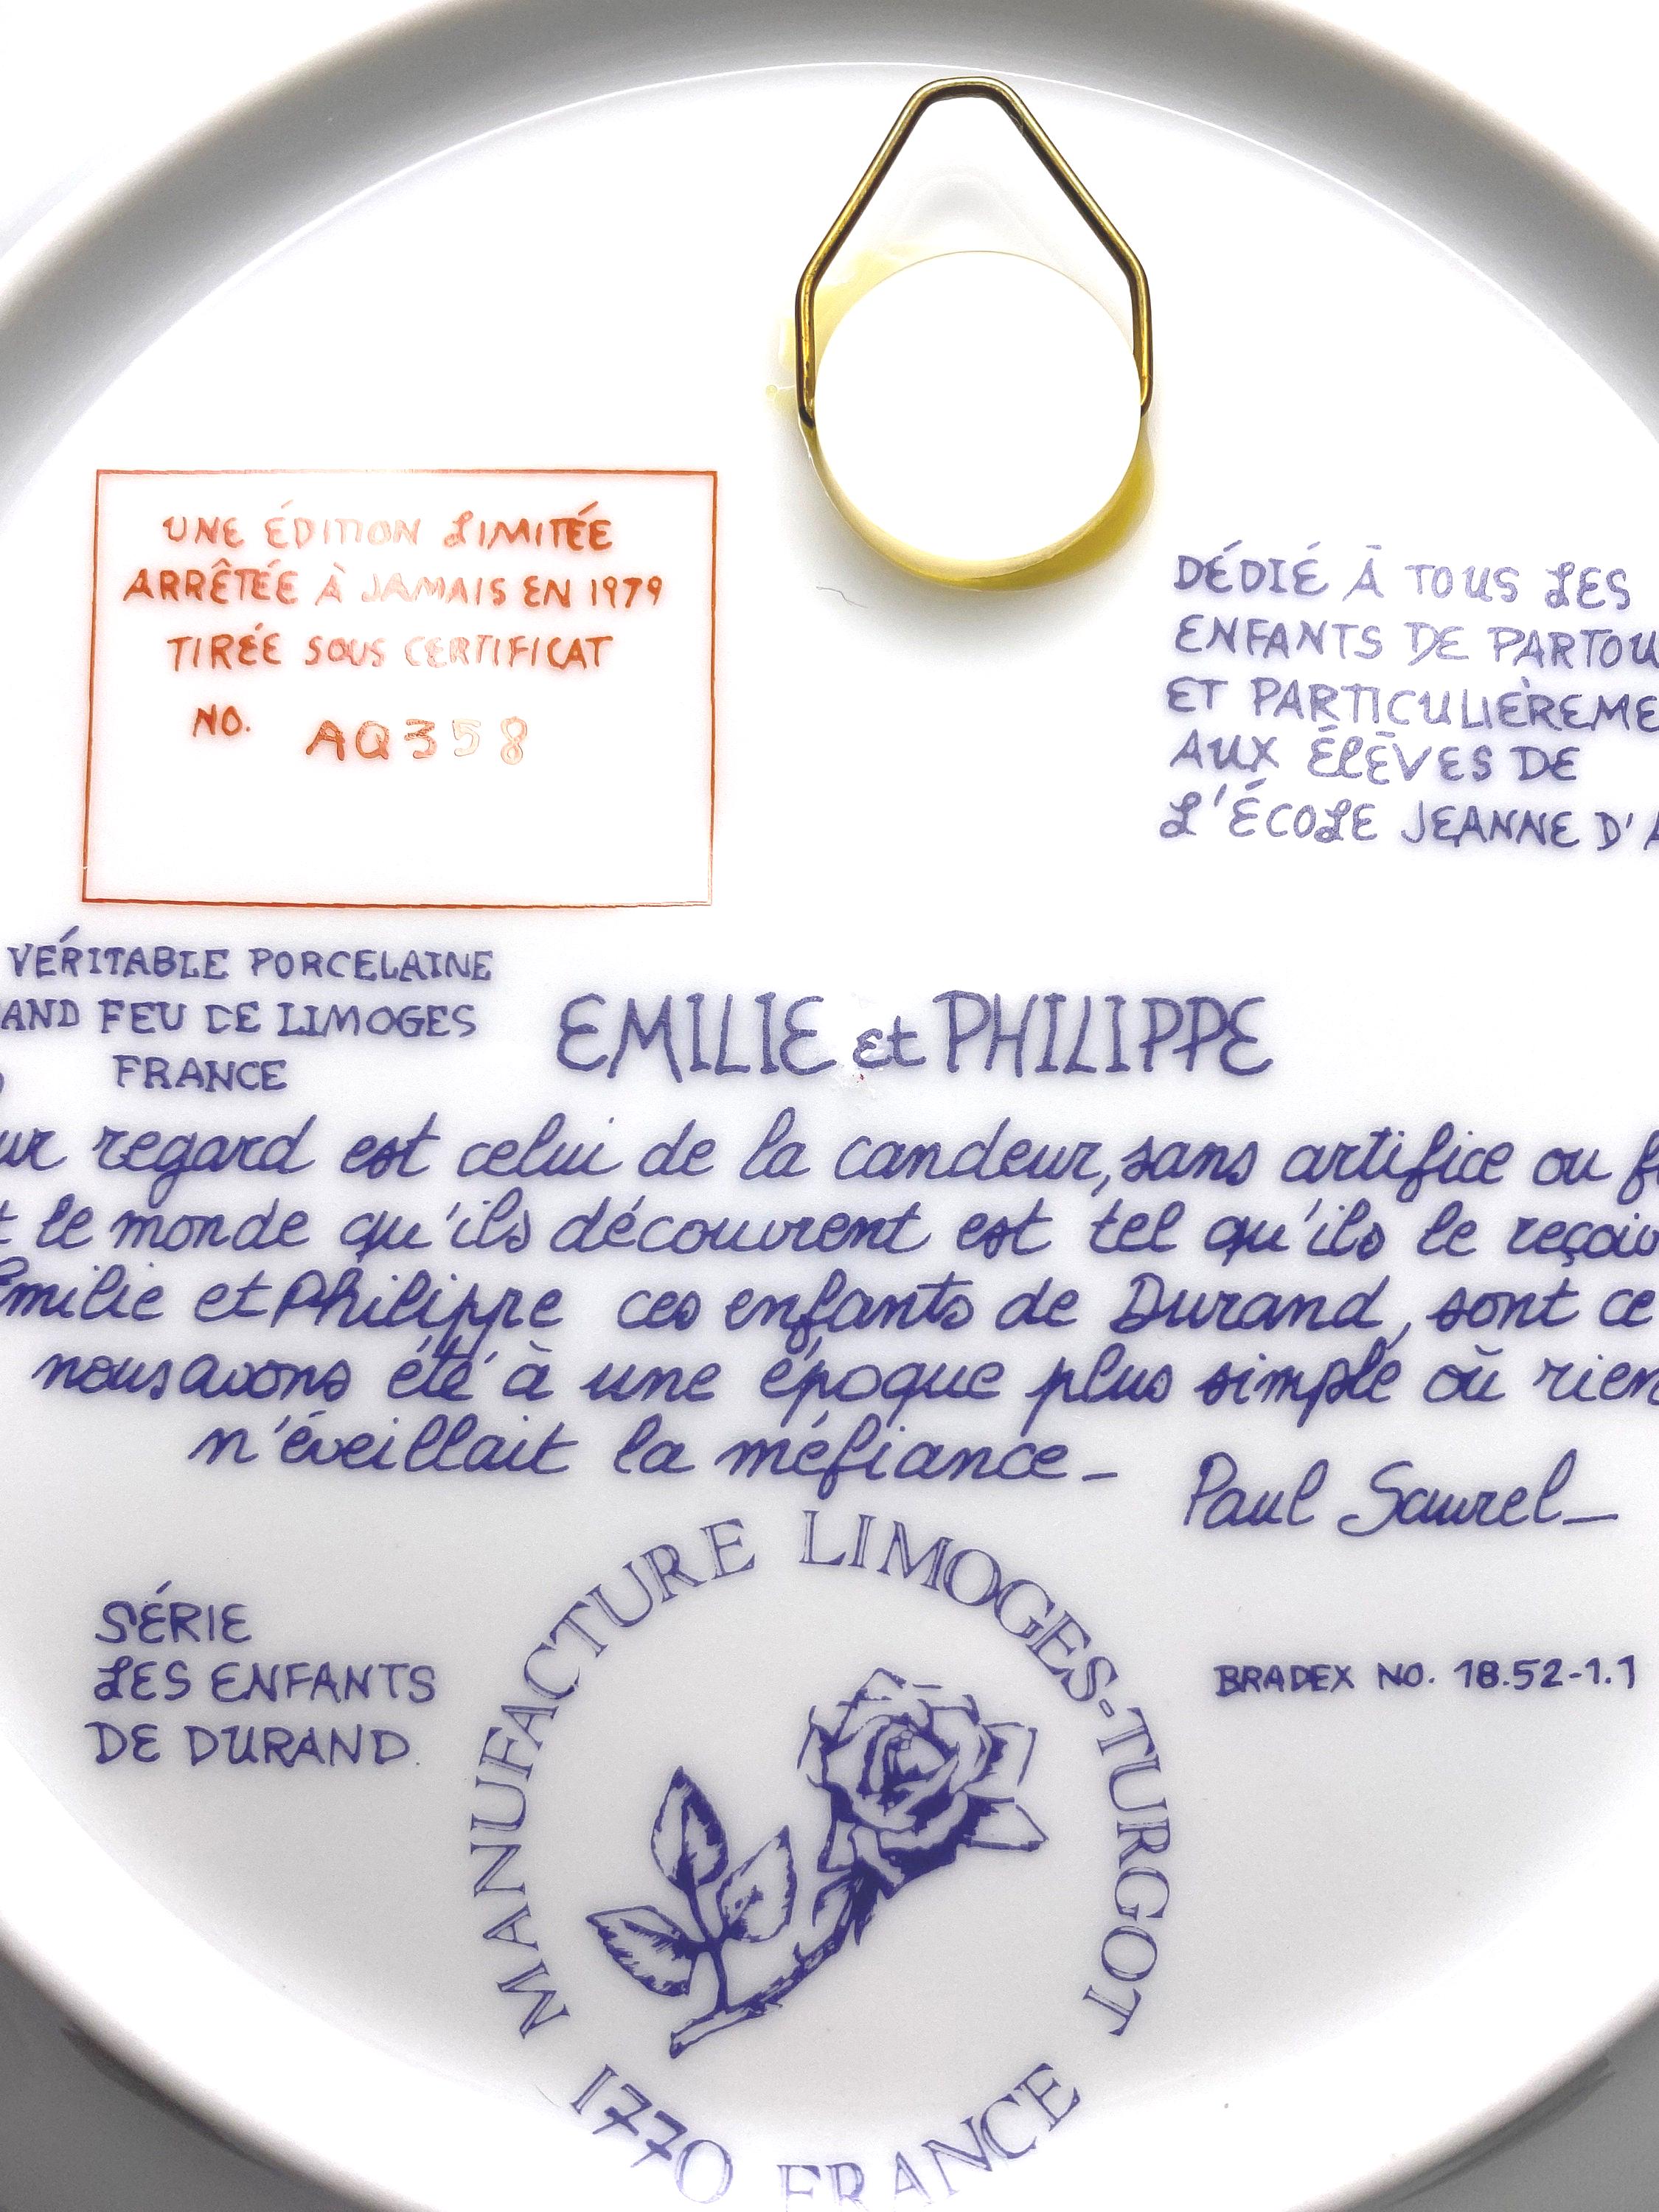 UNE ÉDITION LIMITÉE
ARRÊTÉE À JAMAIS EN 1979
TIRÉE SOUS CERTIFICAT
NO. AQ358
DÉDIÉ À TOUS LES
ENFANTS DE PARTOU
ET PARTICULIÈREME
AUX ÉLÈVES DE
L'ÉCOLE JEANNE D'A
VÉRITABLE PORCELAINE
AND FEU DE LIMOGES
FRANCE
EMILIE et PHILIPPE
ur regard est celui de la candeur, sans artifice ou f
t le monde qu'ils découvrent est tel qu'ils le reçoiv
Emilie et Philippe ces enfants de Durand, sont ce
nous avons été à une époque plus simple où rien
n'éveillait la méfiance_
Paul Saurel_
SÉRIE
LES ENFANTS
DE DURAND.
BRADEX NO. 18.52-1.1
MANUFACTURE LIMOGES-TURGOT
1770 FRANCE